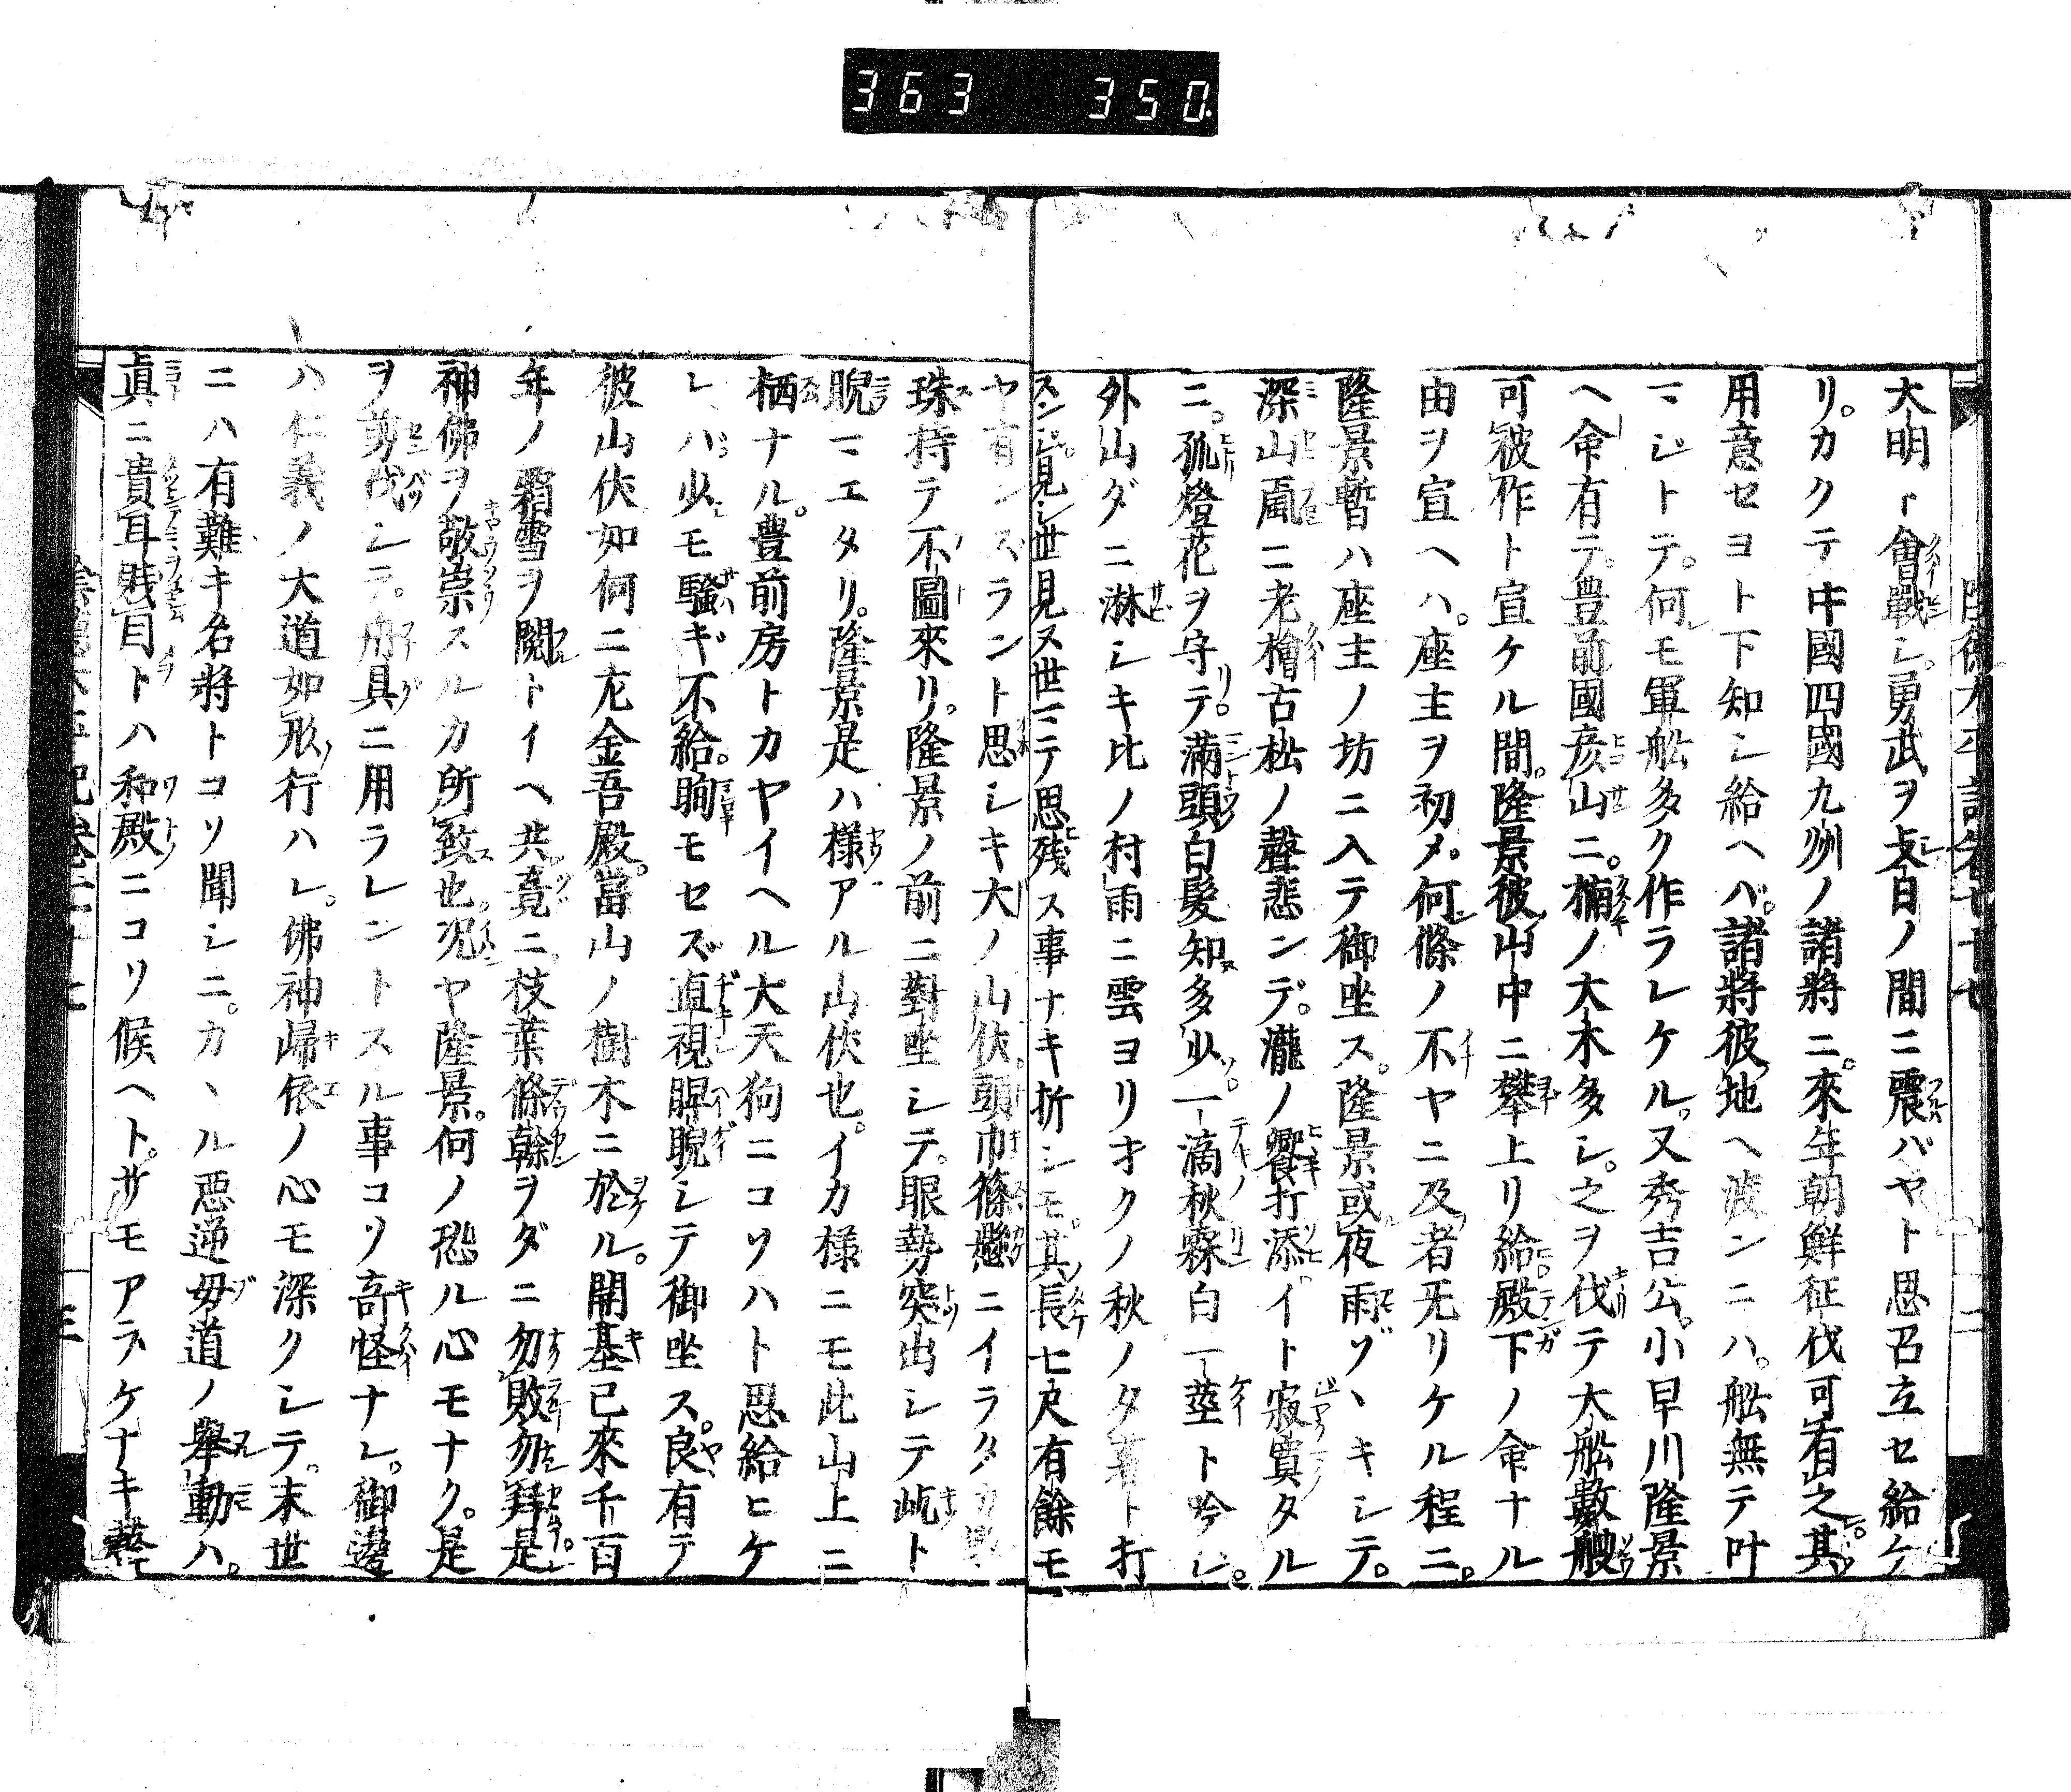 363 350
大明ト會戰シ。勇武ヲ支日ノ間ニ震バヤト思召立セ給ケ
リ。カクテ中國四國九洲ノ諸將ニ。來年朝鮮征伐可有之其
用意セヨト下知シ給ヘバ。諸將彼地ヘ渡ンニハ。舩無テ叶
マジトテ。何モ軍舩多ク作ラレケル。又秀吉公。小早川隆景
ヘ命有テ。豊前國彦山ニ。楠ノ大木多シ。之ヲ伐テ大舩數艘
可被作ト宣ケル間。隆景彼山中ニ攀上リ給殿下ノ命ナル
由ヲ宣ヘハ。座主ヲ初メ。何條ノ不ヤニ及者旡リケル程ニ。
隆景暫ハ座主ノ坊ニ入テ御坐ス。隆景或夜雨ヅヽキシテ。
深山風ニ老檜古松ノ聲悲ンデ。瀧ノ響打添イト寂寞タル
ニ。孤燈花ヲ守テ。滿頭白髮知多少。一滴秋霖白一莖ト吟シ。
外山ダニ淋シキ比ノ村雨ニ雲ヨリオクノ秋ノ夕暮ト打
ズンジ見シ世見ヌ世マテ思残ス事ナキ折シモ。其長七尺有餘モ
ヤ有ンズラント思シキ大ノ山伏。頭巾篠懸ニイラタカノ
珠持テ不圖來リ。隆景ノ前ニ對坐シテ。眼勢突出シテ屹ト
睨マエタリ。隆景是ハ様アル山伏也。イカ様ニモ此山上ニ
栖ナル。豊前房トカヤイヘル大天狗ニコソハト思給ヒケ
レバ少モ騒ギ不給。眴モセズ直視睥睨シテ御坐ス。良有テ
彼山伏如何ニ左金吾殿。當山ノ樹木ニ於ル。開基已來千百
年ノ霜雪ヲ閲トイヘ共。竟ニ枝葉條幹ヲダニ勿敗勿拜是
神佛ヲ敬崇スルカ所致也。况ヤ隆景。何ノ恐ル心モナク。是
ヲ剪伐シテ。舟具ニ用ラレントスル事コソ奇怪ナレ。御邊
ハ仁義ノ大道如形行ハレ。佛神歸依ノ心モ深クシテ。末世
ニハ有難キ名將トコソ聞シニ。カヽル惡逆毋道ノ舉動ハ。
眞ニ貴耳賤目トハ和殿ニコソ候ヘト。サモアラケナキ聲